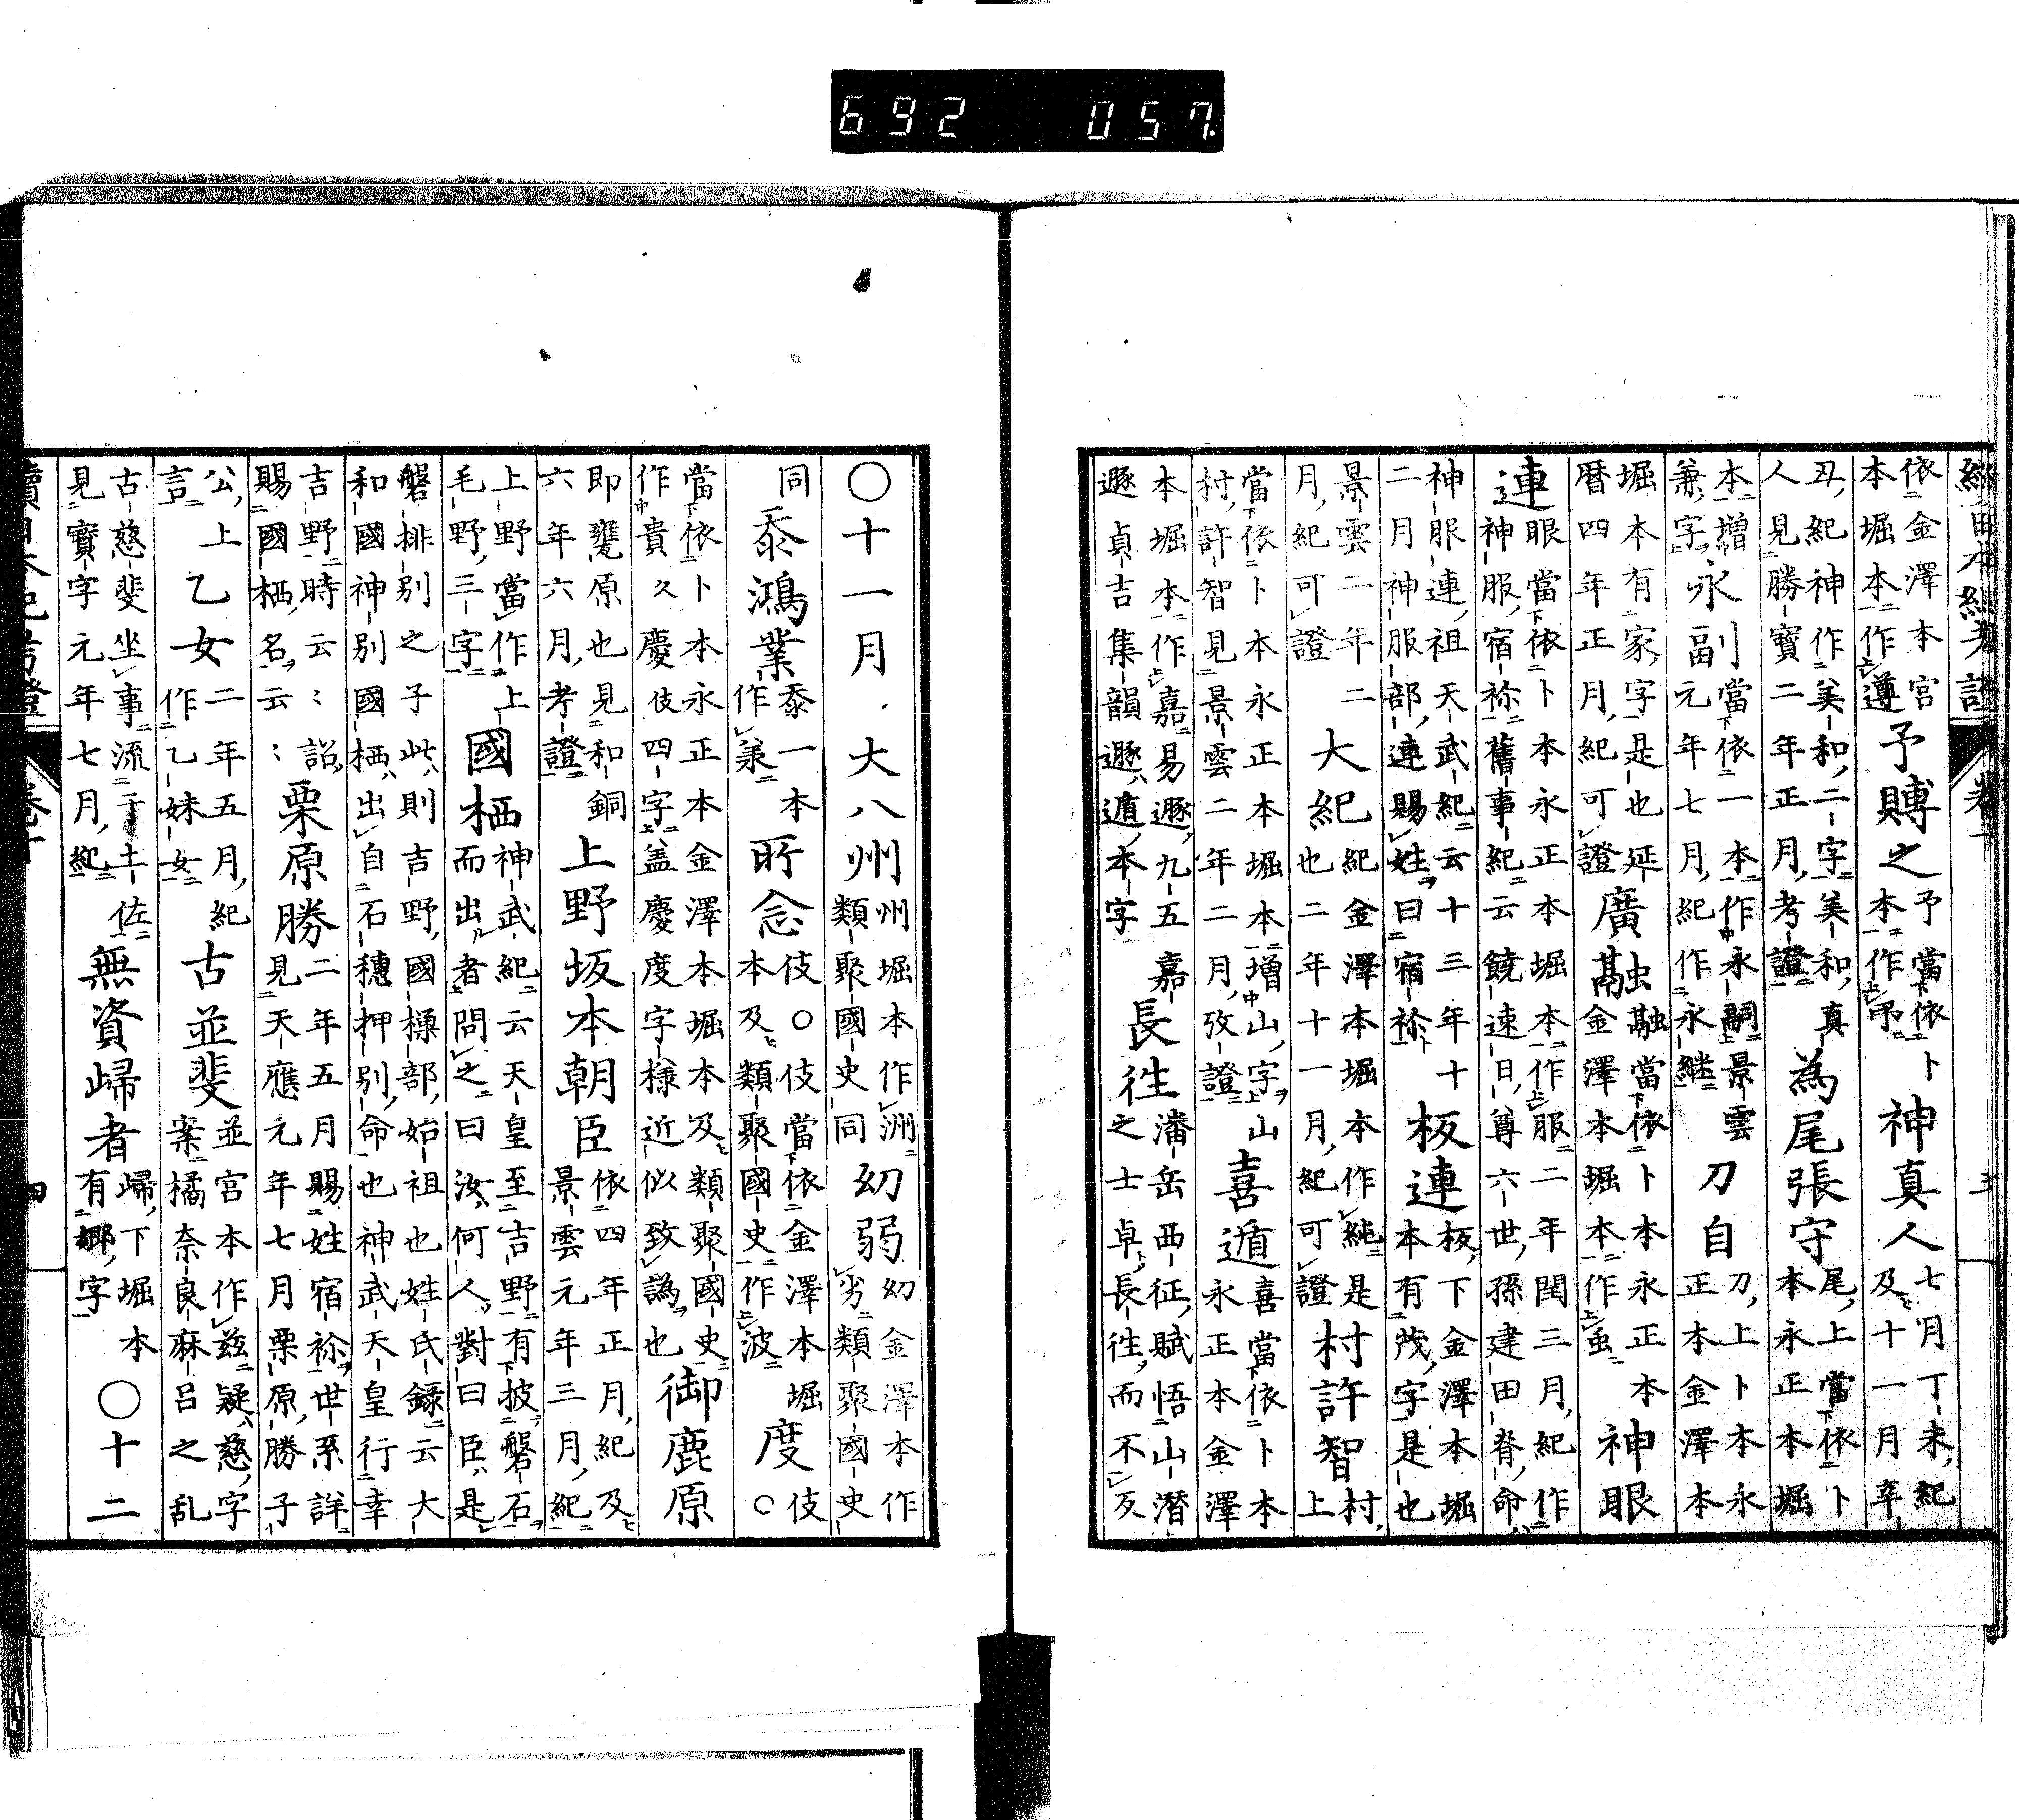 續日本紀考證　卷二　三
依金澤本宮本堀本作遵予賻之予當依卜本作弔神真人七月丁未紀及十一月辛
丑紀神作美和二字美和真人見勝寶二年正月考證為尾張守尾上當依卜本永正本堀
本增兼字永副當依一本作永嗣景雲元年七月紀作永繼刀自刀上卜本永正本金澤本
堀本有家字是也延暦四年正月紀可證廣融融當依卜本永正本金澤本堀本作虽神眼
連眼當依卜本永正本堀本作服二年閏三月紀作神服宿祢舊事紀云饒速日尊六世孫建田背命
神服連祖天武紀云十三年十二月神服部連賜姓曰宿祢板連板下金澤本堀本有茂字是也
景雲二年二月紀可證大紀紀金澤本堀本作純是也二年十一月紀可證村許智村上
當依卜本永正本堀本增山字山村許智見景雲二年二月攷證喜遁喜當依卜本永正本金澤
本堀本作嘉易遯九五嘉遯貞吉集韻遯遁本字長往潘岳西征賦悟山潛之士卓長往而不反
〇十一月．大八州州堀本作洲類聚國史同幼弱幼金澤本作劣類聚國史
同黍鴻業黍一本作兼所念伎〇伎當依金澤本堀本及類聚國史作波度伎〇
當依卜本永正本金澤本堀本及類聚國史作貴久慶伎四字盖慶度字様近似致譌也御鹿原
即甕原也見和銅六年六月考證上野坂本朝臣依四年正月紀及景雲元年三月紀
上野當作上毛野三字國栖神武紀云天皇至吉野有披磐石而出者問之曰汝何人對曰臣是
磐排別之子此則吉野國樔部始祖也姓氏録云大和國神別國栖出自石穗押別命也神武天皇行幸
吉野時云〻詔賜國栖名云〻栗原勝二年五月賜姓宿祢世系詳見天應元年七月栗原勝子
公言上乙女二年五月紀作乙妹女古並斐並宮本作茲疑慈字案橘奈良麻呂之乱
古慈斐坐事流于土佐見寶字元年七月紀無資歸者歸下堀本有郷字〇十二
續日本紀考證　四
692　057.